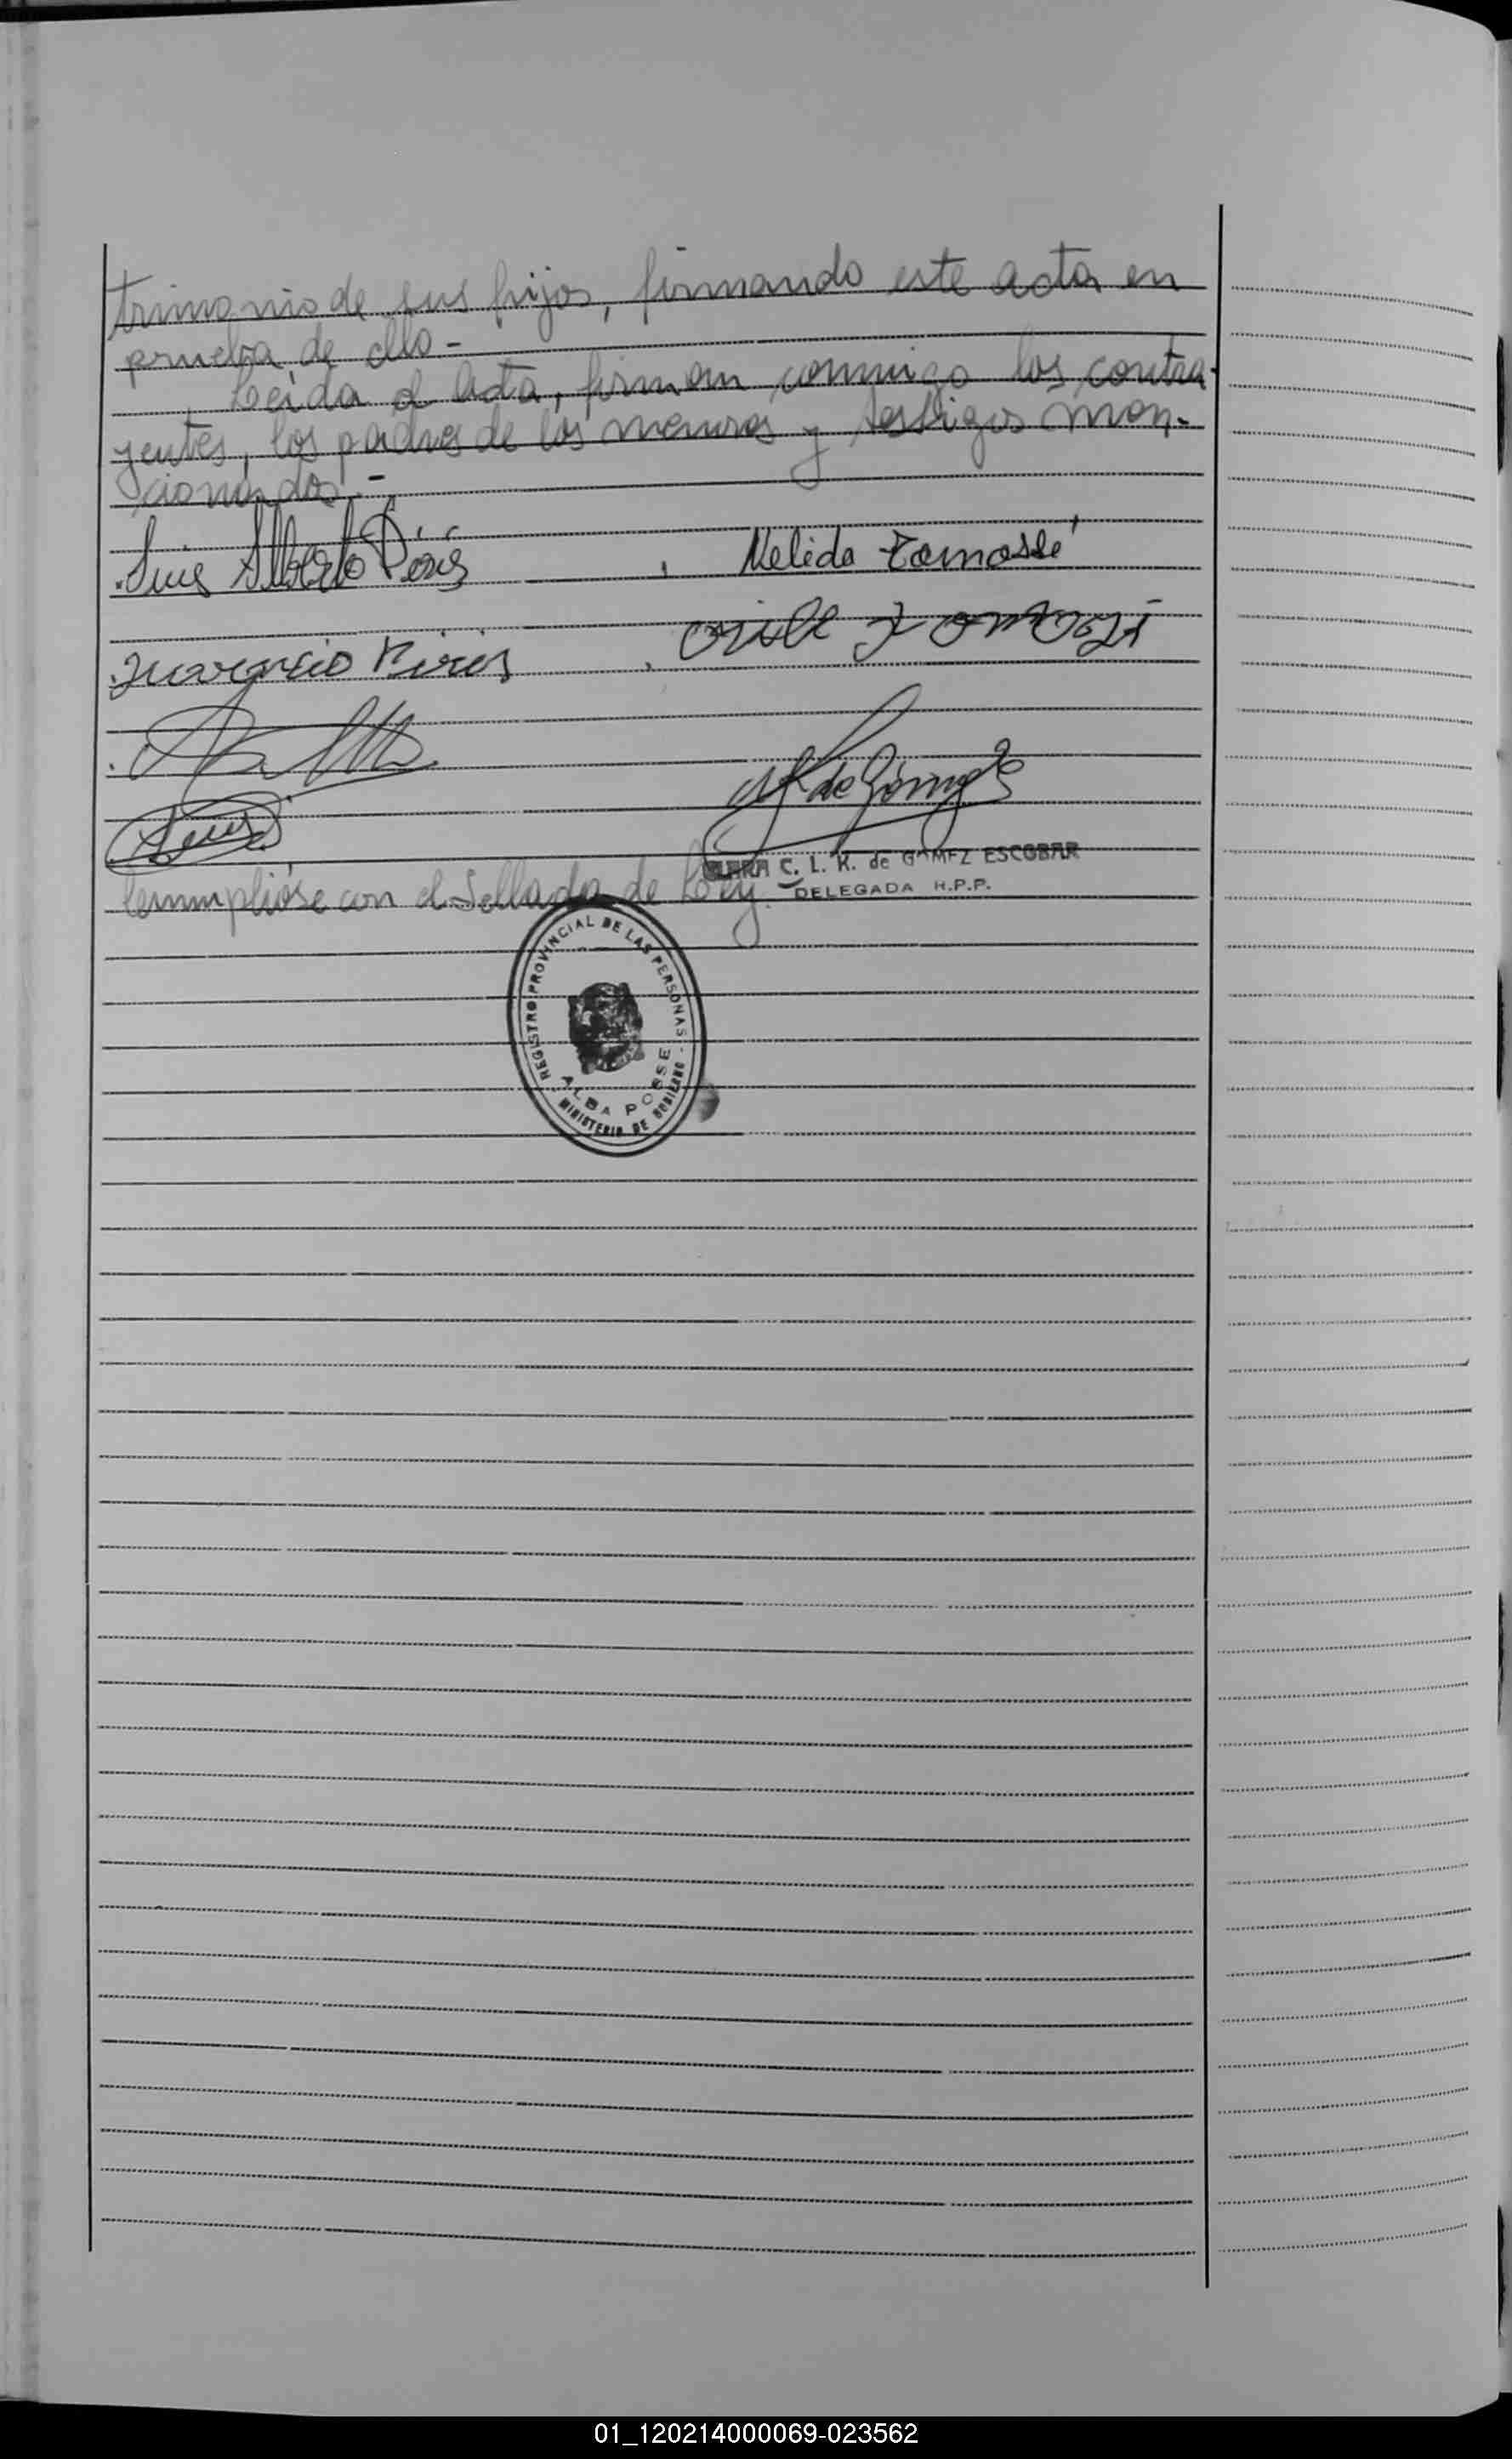 trimonio de sus hijos, firmando este acta en
prueba de ello.-
Leida el Acta, firman conmigo los contra-
yentes, los padres de los menores y testigos men-
cionados.-
Luis Alberto Piris , Nelida Tomassé
Piris
de Gómez
CLARA C. L. K. de GAMEZ ESCOBAR
DELEGADA R.P.P.
Cumplióse con el Sellado de Ley.
REGISTRO PROVINCIAL DE LAS PERSONAS
ALBA POSSE
MINISTERIO DE GOBIERNO
01_120214000069-023562